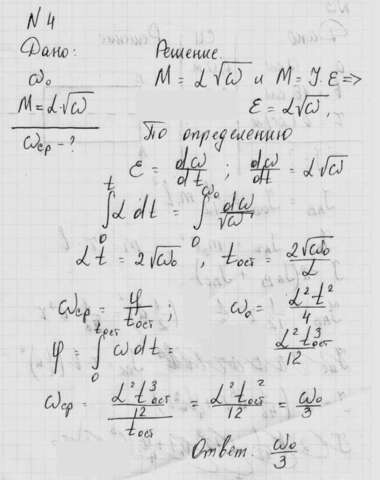 N 4
Дано: Решение.
ω₀ M = α√ω и M = J·ε =>
M = α√ω ε = α√ω,
ωср - ? По определению
ε = dω/dt ; dω/dt = α√ω
∫₀ᵗ α dt = ∫₀^ω₀ dω/√ω
αt = 2√ω₀ , tост = 2√ω₀/α
ωср = φ/tост ; ω₀ = α²t²/4
φ = ∫₀^tост ω dt = α²t³ост/12
ωср = (α²t³ост/12)/tост = α²tост²/12 = ω₀/3
Ответ ω₀/3